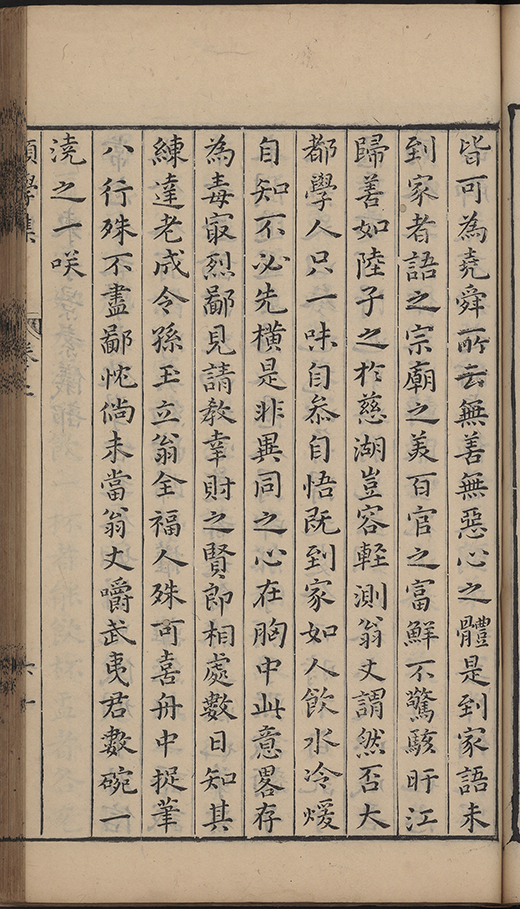 皆可為堯舜所云無善無惡心之體是到家語未
到家者語之宗廟之美百官之富鮮不驚駭旴江
歸善如陸子之於慈湖豈容輕測翁丈謂然否大
都學人只一味自叅自悟既到家如人飲水冷煖
自知不必先橫是非異同之心在胸中此意畧存
為毒㝡烈鄙見請教幸財之賢郎相處數日知其
練達老成令孫玉立翁全福人殊可喜舟中捉筆
八行殊不盡鄙忱倘未當翁丈嚼武夷君數碗一
澆之一咲
願學集
卷之
六十